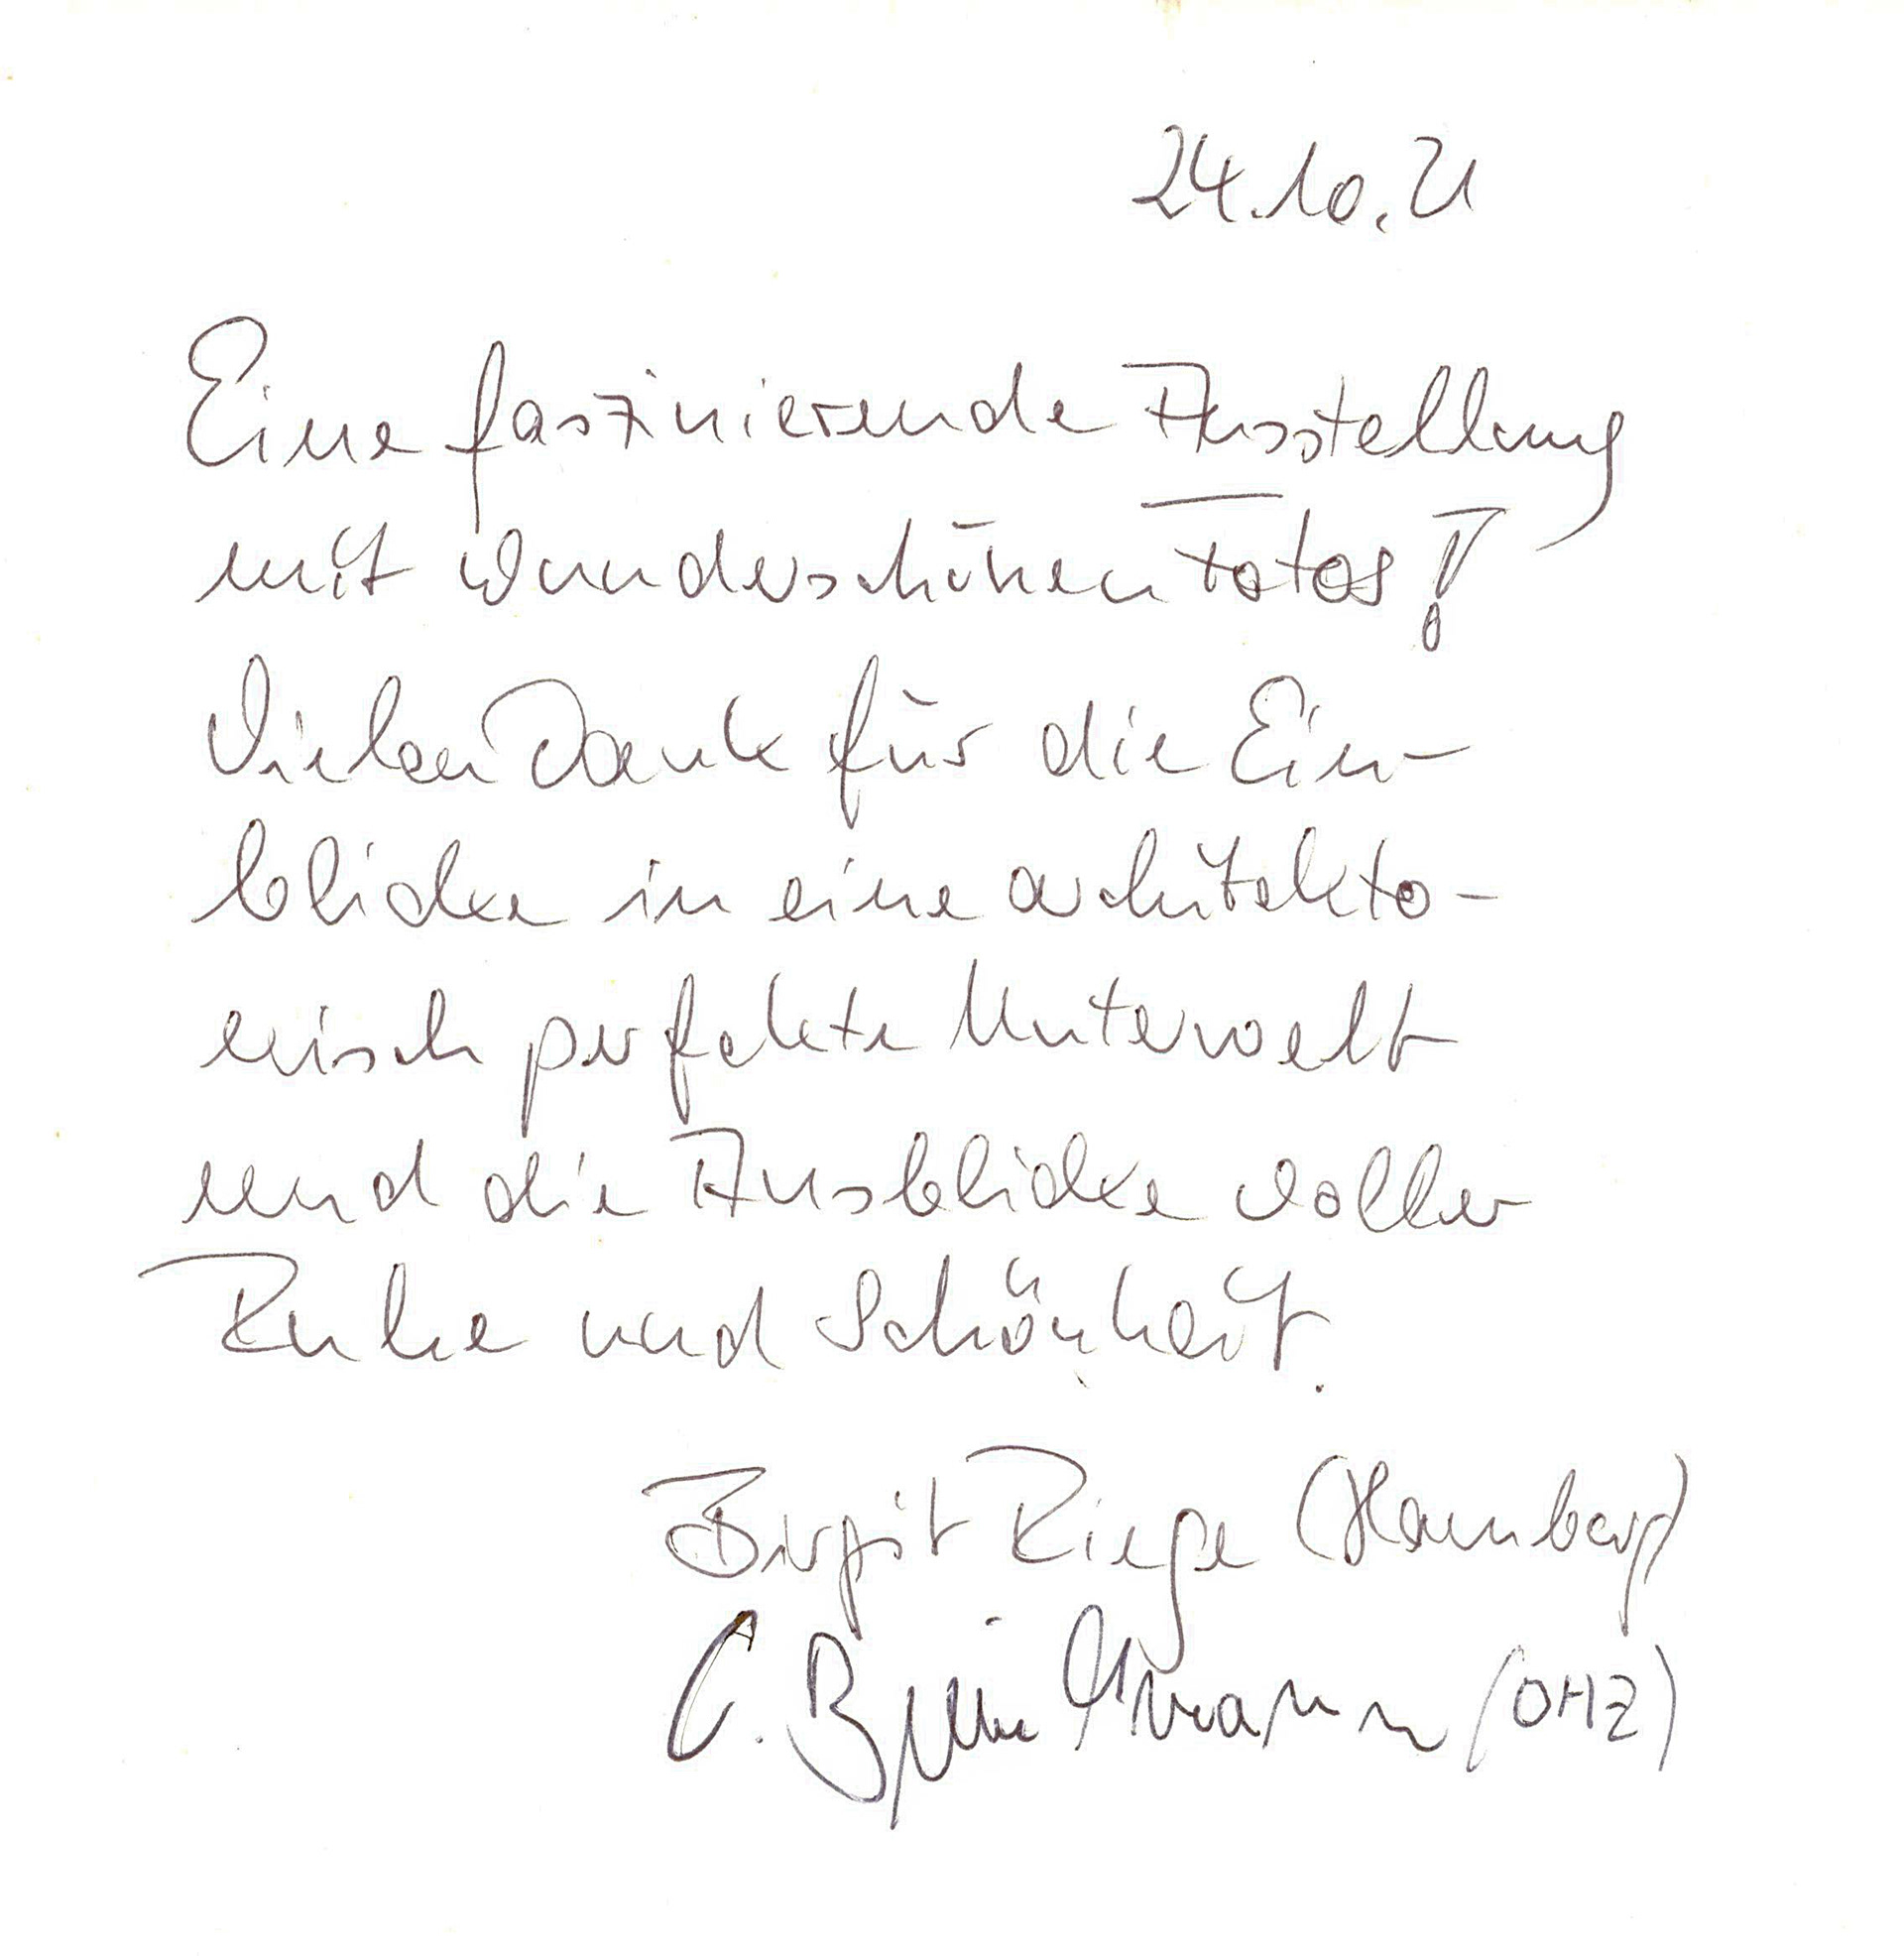 24.10.21
Eine faszinierende Ausstellung
mit wunderschönen Fotos!
Vielen Dank für die Ein-
blicke in eine architekto-
nisch perfekte Unterwelt
und die Ausblicke voller
Ruhe und Schönheit.
Birgit Riege (Hamburg)
C. (OHZ)